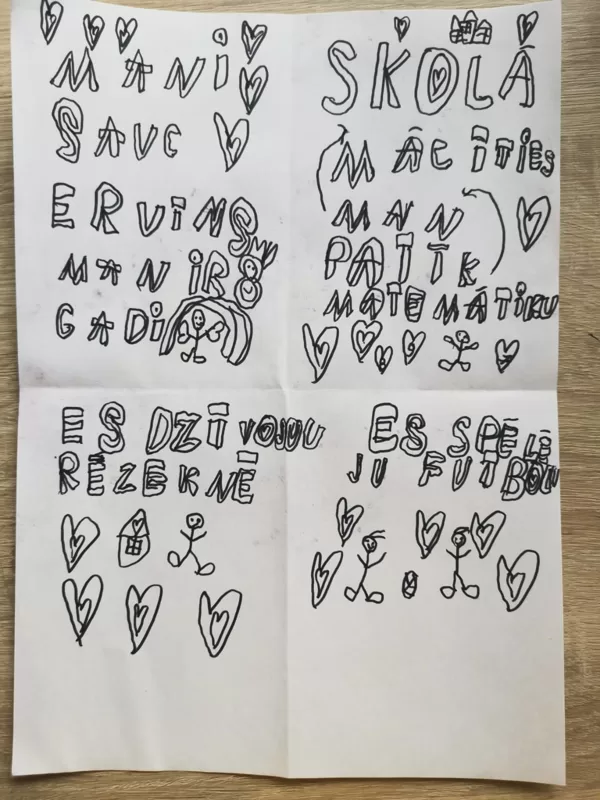 MANI
SAUC
ERVINS
MAN IR 8
GADI
SKOLĀ
MĀCĪTIES
MAN
PATĪK
MATEMĀTIKU
ES DZĪVOJUU
RĒZEKNĒ
ES SPĒLĒ
JU FUTBOLU